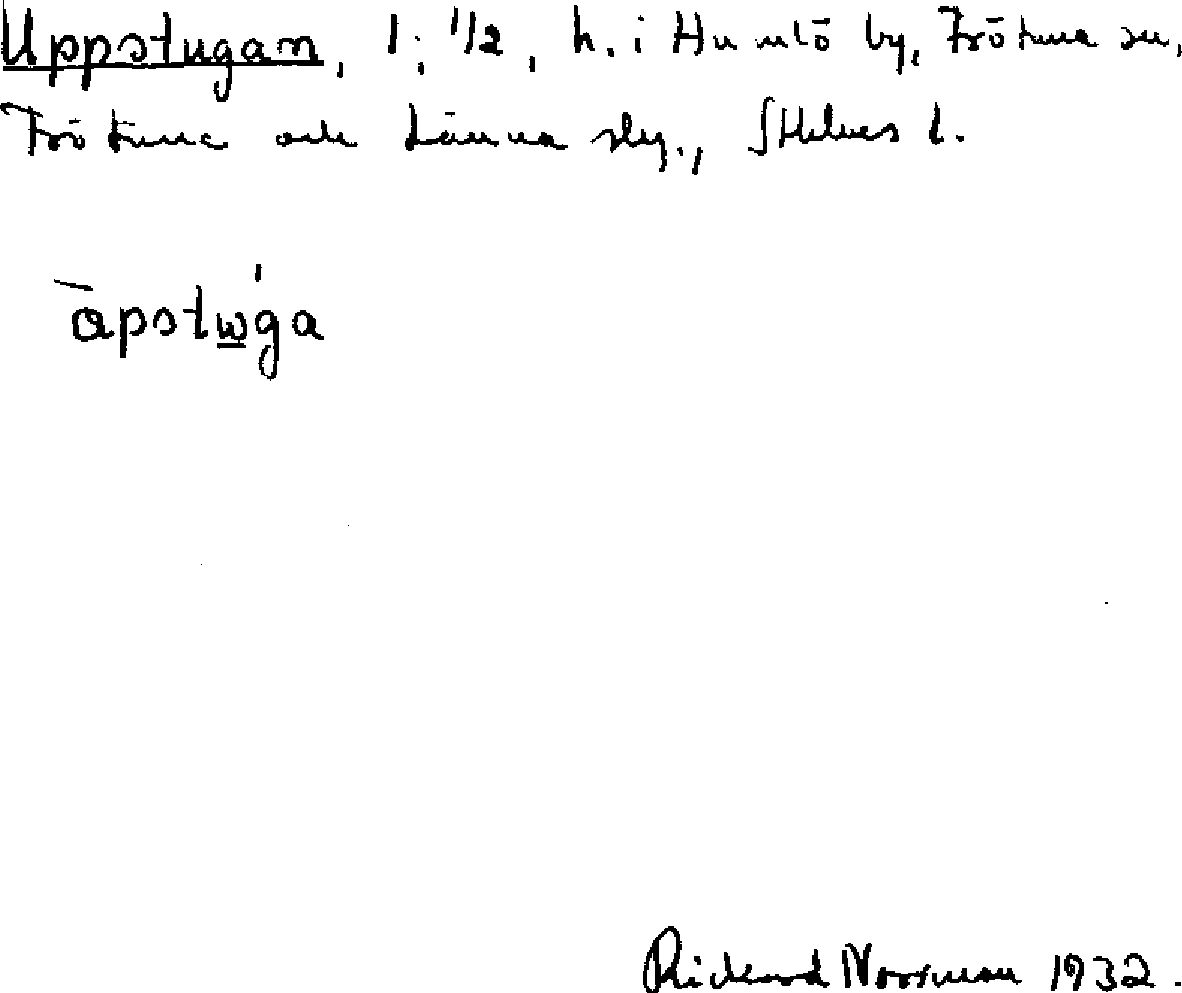 Uppstugan, 1; 1/2, h. i Humlö by, Frötuna sn,
Frötuna och Länna slg., Sthlms l.
apstwga
Rickard Norrman 1932.